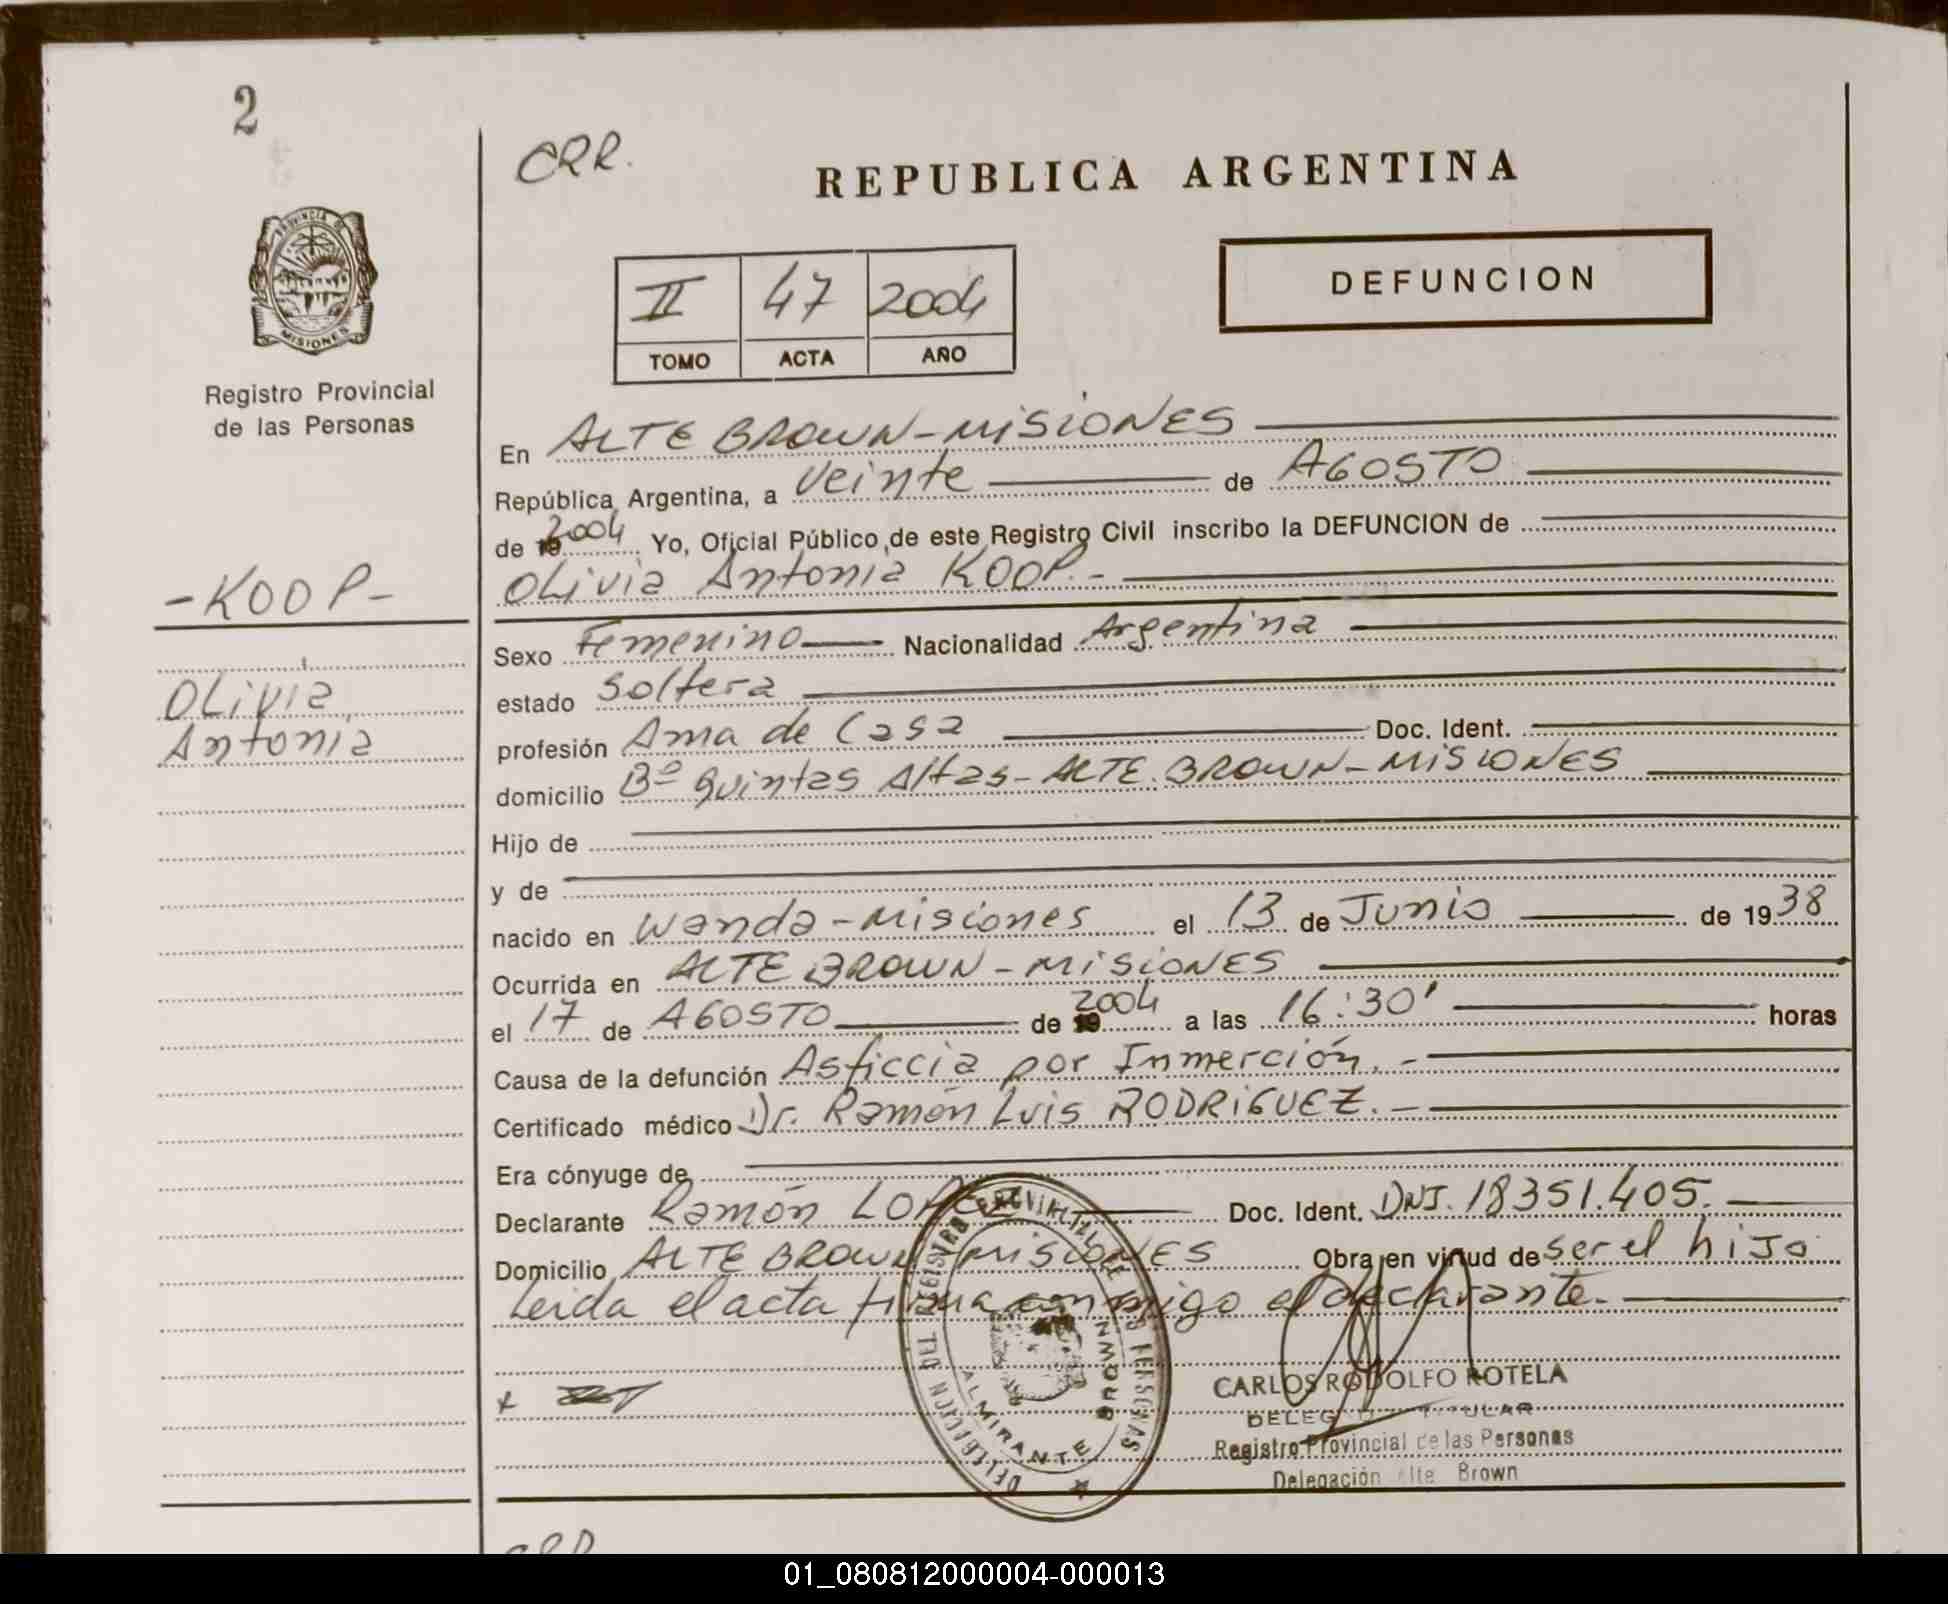 2
CRR.
REPUBLICA ARGENTINA
PROVINCIA DE
MISIONES
Registro Provincial
de las Personas
II 47 2004
TOMO ACTA AÑO
DEFUNCION
En ALTE BROWN-MiSiONES
República Argentina, a veinte de AGOSTO
de 19 2004 Yo, Oficial Público de este Registro Civil inscribo la DEFUNCION de
OLivia Antonia KOOP.-
-KOOP-
OLivia
Antonia
Sexo Femenino Nacionalidad Argentina
estado Soltera
profesión Ama de Casa Doc. Ident.
domicilio Bº Quintas Altas-ALTE.BROWN-MISIONES
Hijo de
y de
nacido en Wanda-Misiones el 13 de Junio de 1938
Ocurrida en ALTE BROWN-MISIONES
el 17 de AGOSTO de 19 2004 a las 16:30' horas
Causa de la defunción Asficcia por Inmerción.-
Certificado médico Dr. Ramón Luis RODRIGUEZ.-
Era cónyuge de
Declarante Ramón Doc. Ident. DNI. 18351.405.
Domicilio ALTE BROWN MISIONES Obra en virtud de ser el hijo
Leida el acta firma conmigo el declarante.
DELEGACION DEL REGISTRO PROVINCIAL DE LAS PERSONAS
ALMIRANTE BROWN
CARLOS RODOLFO ROTELA
DELEGADO TITULAR
Registro Provincial de las Personas
Delegación Alte Brown
CRR
01_080812000004-000013